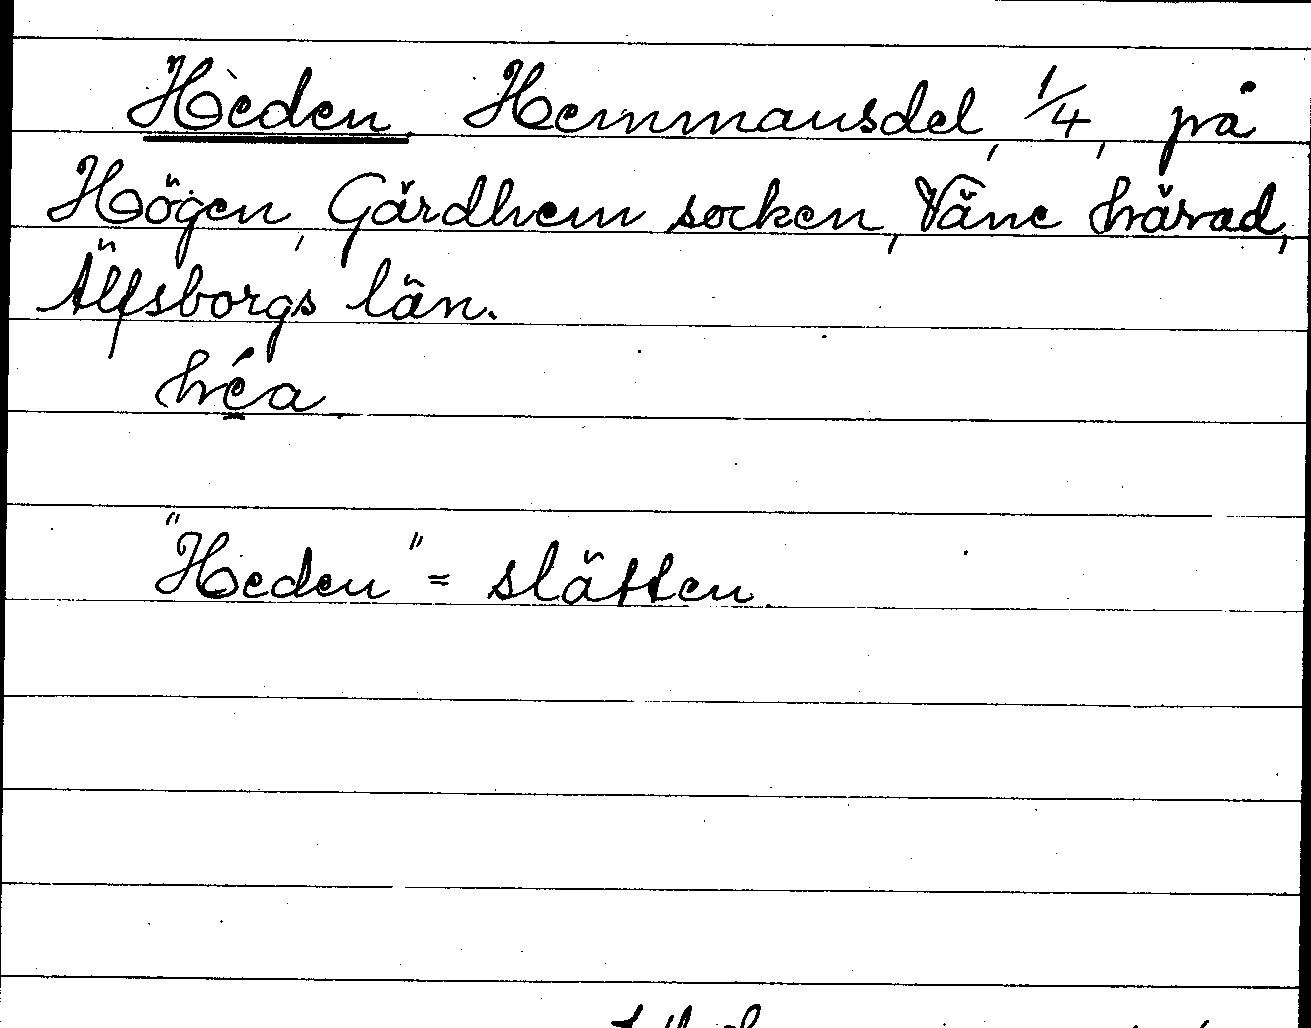 Hèden. Hemmansdel, 1/4, på
Högen, Gärdhem socken, Väne härad,
Älfsborgs län.
héa
"Heden" = slätten.